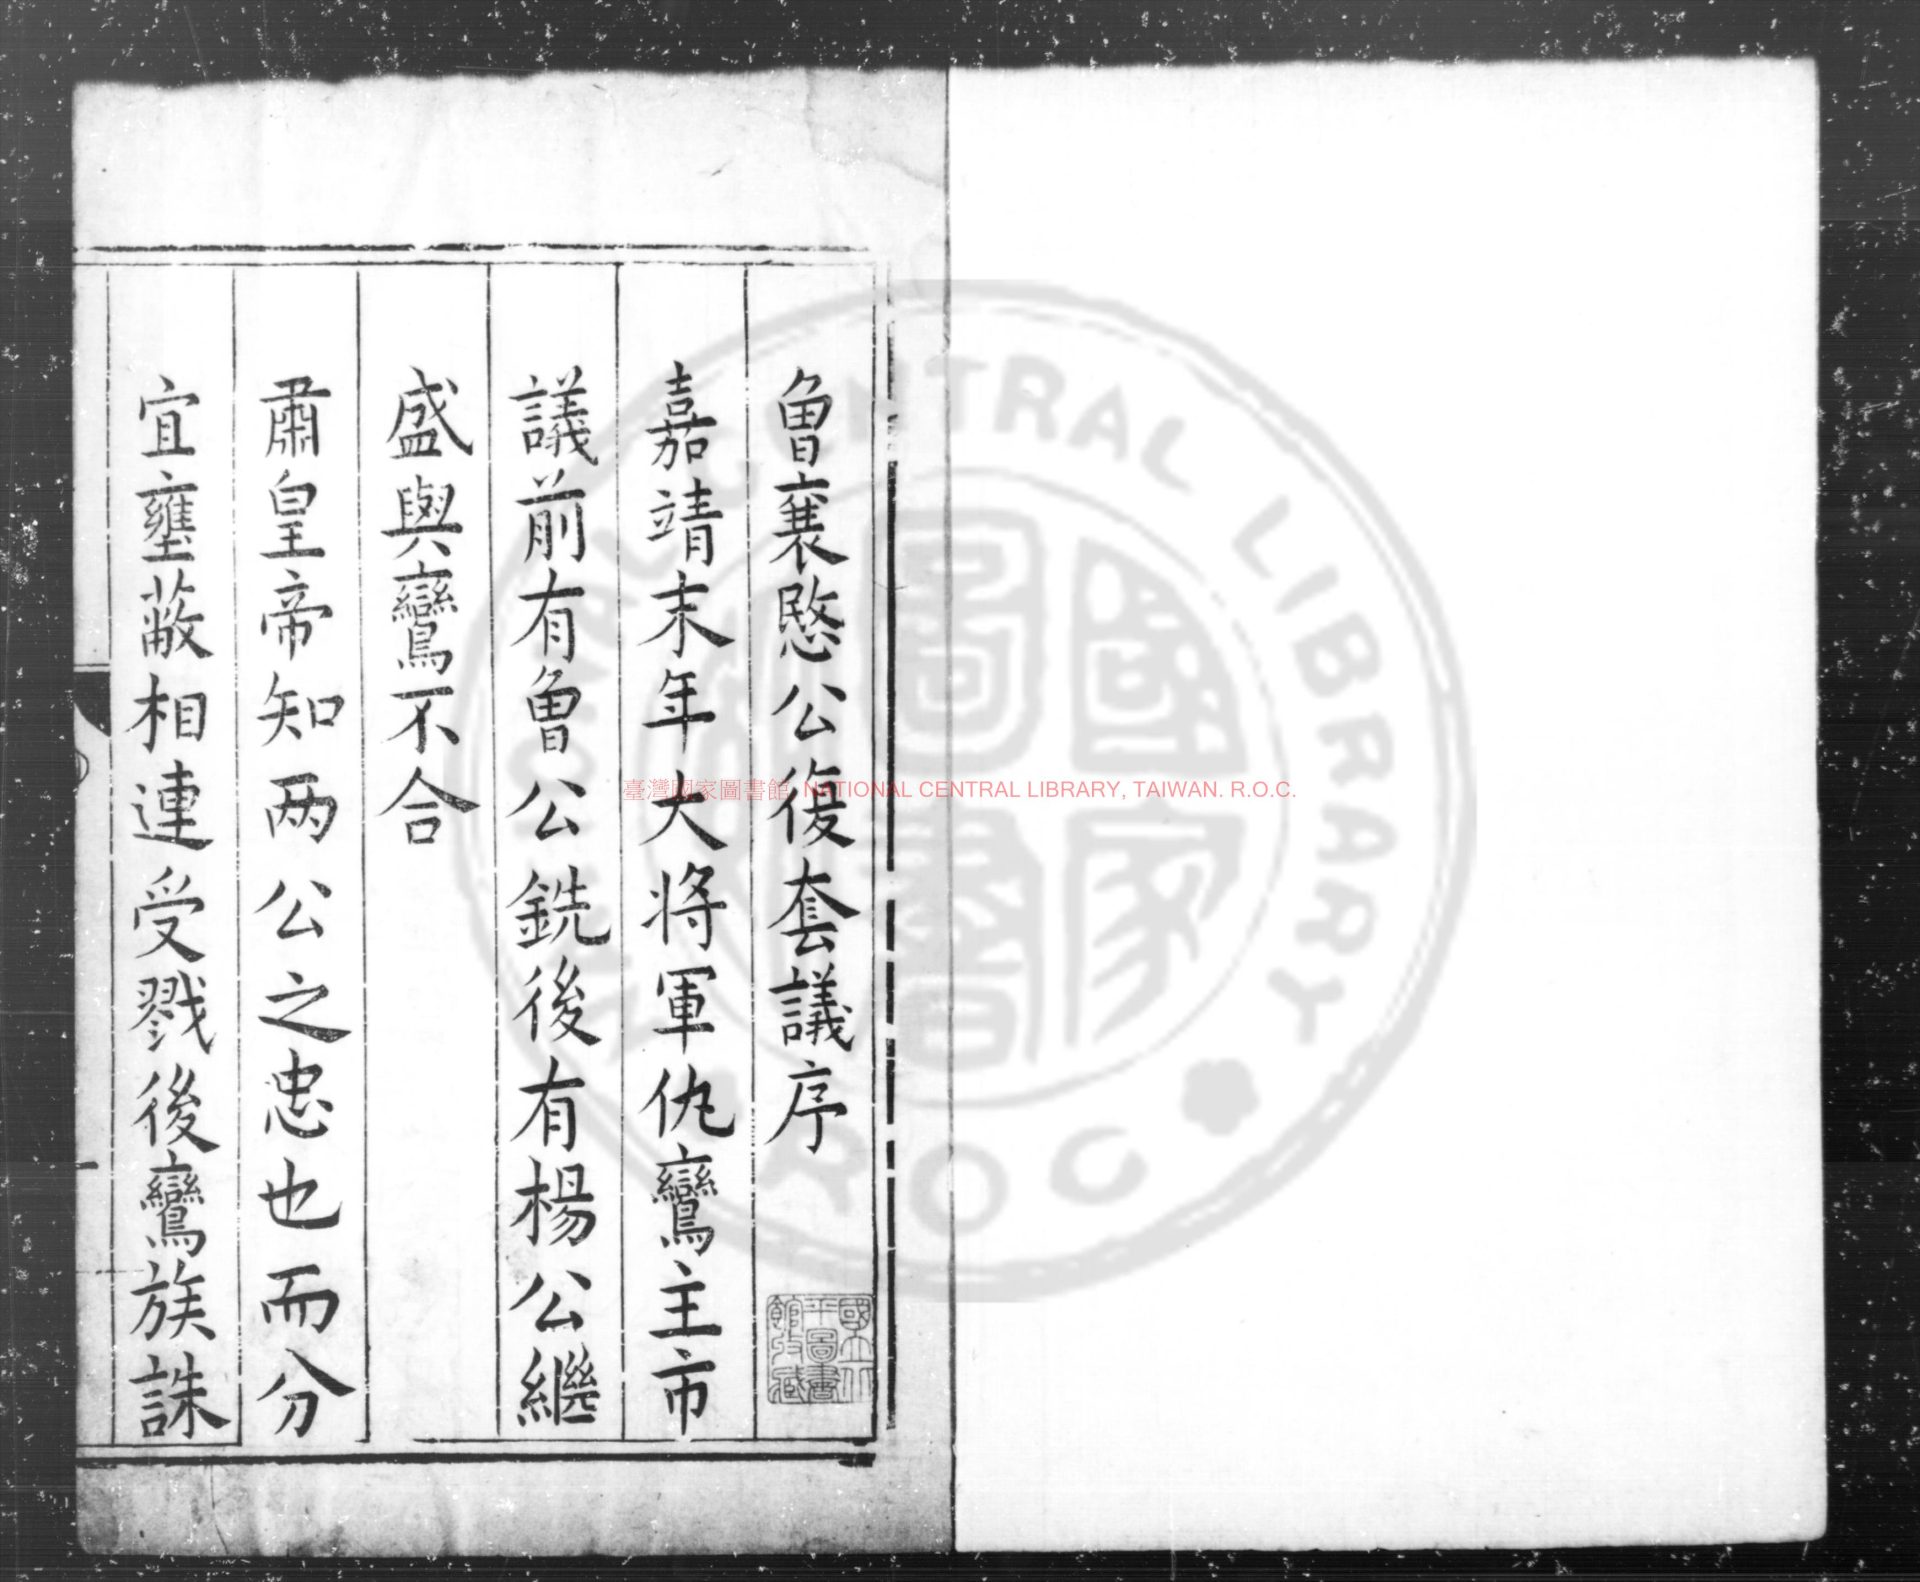 曾襄愍公復套議序
嘉靖末年大將軍仇鸞主市
議前有曾公銑後有楊公繼
盛與鸞不合
肅皇帝知两公之忠也而分
宜壅蔽相連受戮後鸞族誅
國立北
平圖書
館收藏
臺灣國家圖書館, NATIONAL CENTRAL LIBRARY, TAIWAN. R.O.C.
NATIONAL CENTRAL LIBRARY
ROC
國家
圖書